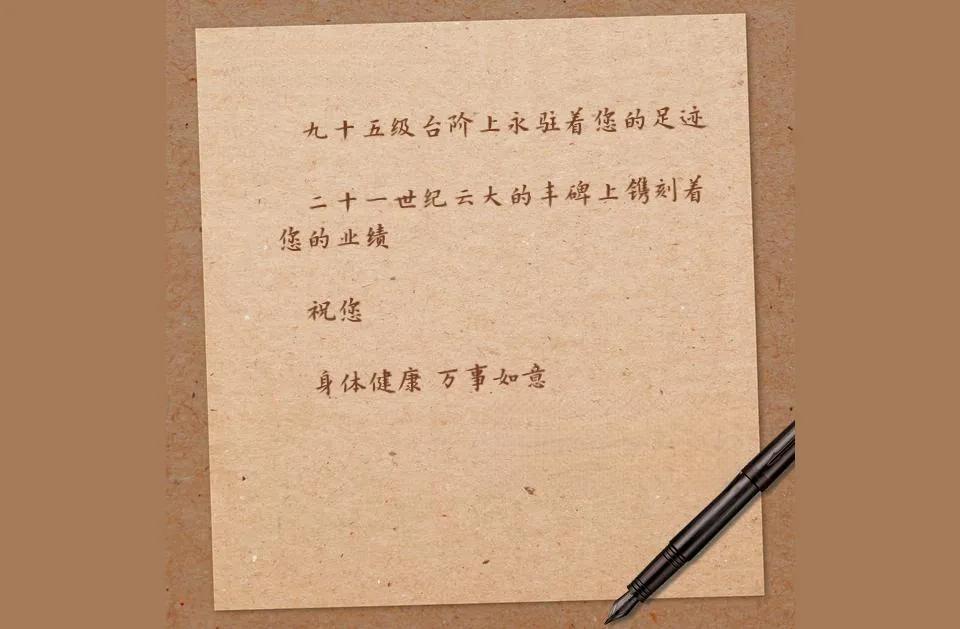 九十五级台阶上永驻着您的足迹
二十一世纪云大的丰碑上镌刻着
您的业绩
祝您
身体健康 万事如意